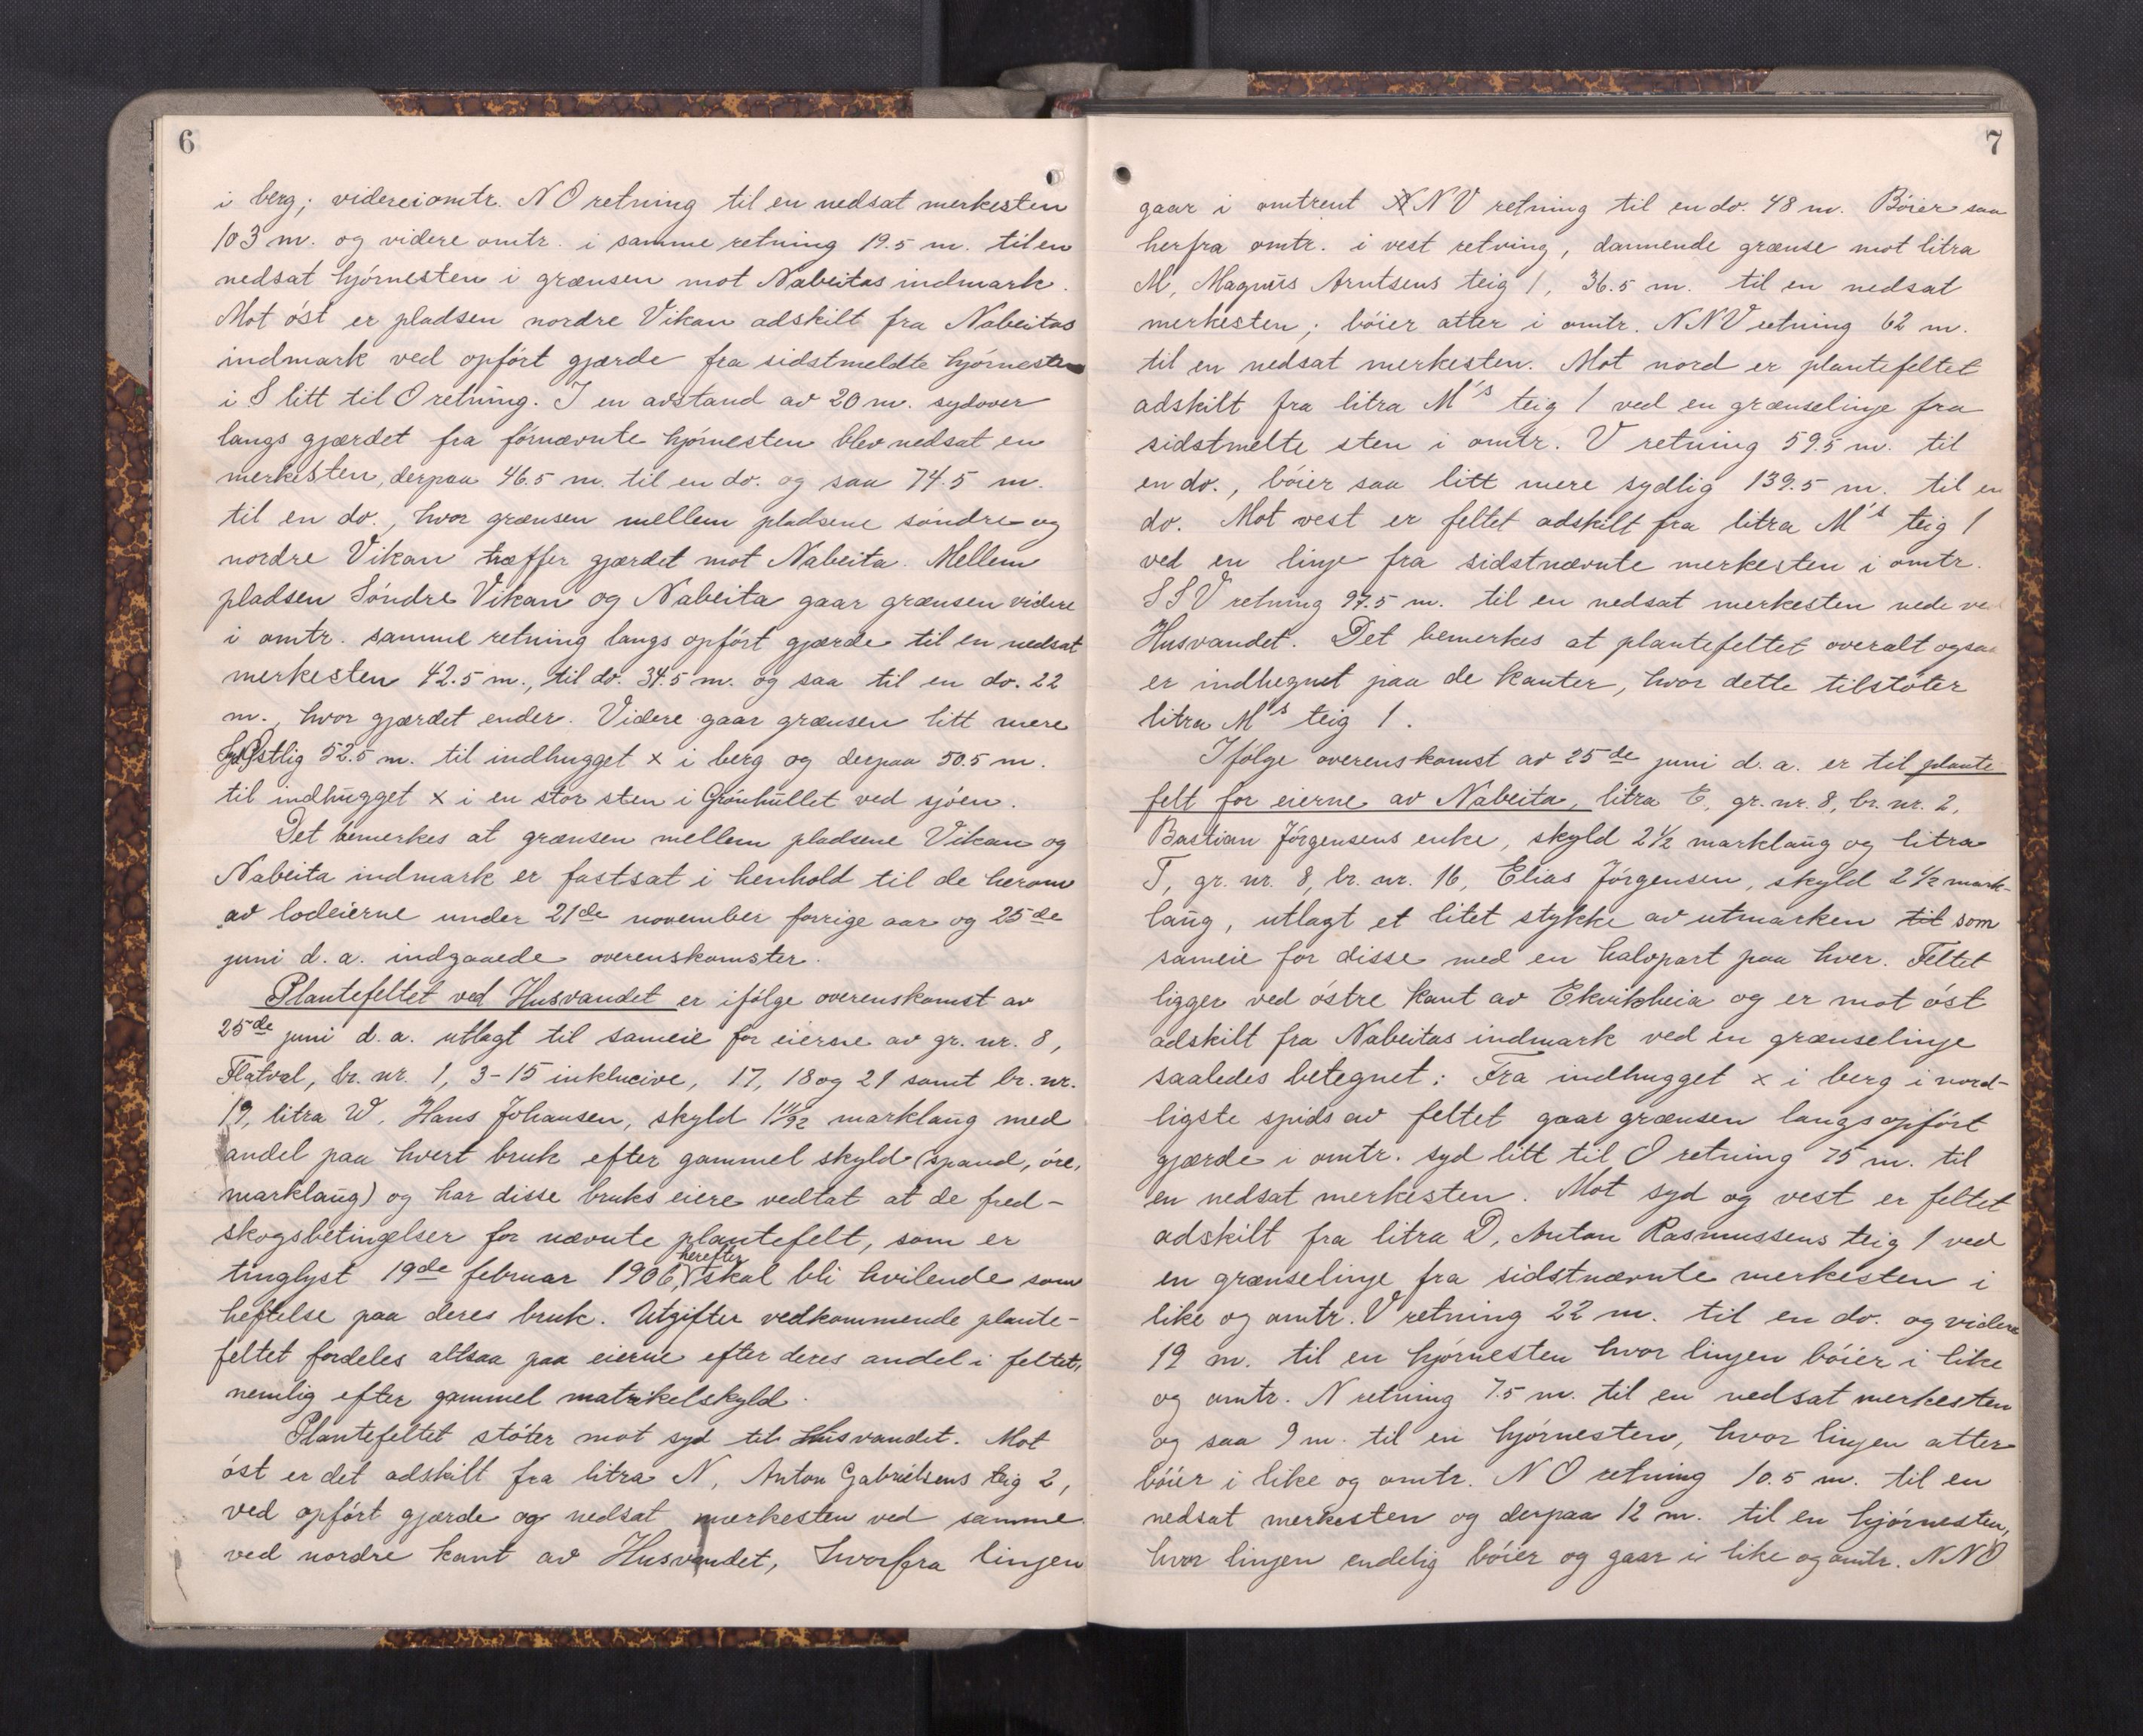 6
i berg; videre i omtr. N O retning til en nedsat merkesten
103 m. og videre omtr. i samme retning 19.5 m. til en
nedsat hjörnesten i grænsen mot Nabeitas indmark.
Mot öst er pladsen nordre Vikan adskilt fra Nabeitas
indmark ved opfört gjærde fra sidstmeldte hjörnesten
i S litt til O retning. I en avstand av 20 m. sydover
langs gjærdet fra förnævnte hjörnesten blev nedsat en
merkesten, derpaa 46.5 m. til en do. og saa 74.5 m.
til en do., hvor grænsen mellem pladsene söndre og
nordre Vikan træffer gjærdet mot Nabeita. Mellem
pladsen Söndre Vikan og Nabeita gaar grænsen videre
i omtr. samme retning langs opfört gjærde til en nedsat
merkesten 42.5 m., til do. 34.5 m. og saa til en do. 22
m., hvor gjærdet ender. Videre gaar grænsen litt mere
sydöstlig 52.5 m. til indhugget x i berg og derpaa 50.5 m.
til indhugget x i en stor sten i Grönhullet ved sjöen.
Det bemerkes at grænsen mellem pladsene Vikan og
Nabeita indmark er fastsat i henhold til de herom
av lodeierne under 21de november forrige aar og 25de
juni d. a. indgaaede overenskomster.
Plantefeltet ved Husvandet er ifölge overenskomst av
25de juni d. a. utlagt til sameie for eierne av gr. nr. 8,
Flatval, br. nr. 1, 3-15 inklusive, 17, 18 og 21 samt br. nr.
19, litra W, Hans Johansen, skyld 1 11/92 marklaug med
andel paa hvert bruk efter gammel skyld (spand, öre,
marklaug) og har disse bruks eiere vedtat at de fred-
skogsbetingelser for nævnte plantefelt, som er
tinglyst 19de februar 1906, herefter skal bli hvilende som
heftelse paa deres bruk. Utgifter vedkommende plante-
feltet fordeles altsaa paa eierne efter deres andel i feltet,
nemlig efter gammel matrikelskyld.
Plantefeltet stöter mot syd til Husvandet. Mot
öst er det adskilt fra litra N, Anton Gabrielsens teig 2,
ved opfört gjærde og nedsat merkesten ved samme
ved nordre kant av Husvandet, hvorfra linjen
7
gaar i omtrent NNV retning til en do. 48 m. Böier saa
herfra omtr. i vest retning, dannende grænse mot litra
M, Magnus Arntsens teig 1, 36.5 m. til en nedsat
merkesten; böier atter i omtr. NNV retning 62 m.
til en nedsat merkesten. Mot nord er plantefeltet
adskilt fra litra M's teig 1 ved en grænselinje fra
sidstmelte sten i omtr. V retning 59.5 m. til
en do., böier saa litt mere sydlig 139.5 m. til en
do. Mot vest er feltet adskilt fra litra M's teig 1
ved en linje fra sidstnævnte merkesten i omtr.
SSV retning 97.5 m. til en nedsat merkesten nede ved
Husvandet. Det bemerkes at plantefeltet overalt ogsaa
er indhegnet paa de kanter, hvor dette tilstöter
litra M's teig 1.
Ifölge overenskomst av 25de juni d. a. er til plante
felt for eierne av Nabeita, litra E, gr. nr. 8, br. nr. 2,
Bastian Jörgensens enke, skyld 2 1/2 marklaug og litra
T, gr. nr. 8, br. nr. 16, Elias Jörgensen, skyld 2 1/2 mark-
laug, utlagt et litet stykke av utmarken til som
sameie for disse med en halvpart paa hver. Feltet
ligger ved östre kant av Ekvikheia og er mot öst
adskilt fra Nabeitas indmark ved en grænselinje
saaledes betegnet: Fra indhugget x i berg i nord-
ligste spids av feltet gaar grænsen langs opfört
gjærde i omtr. syd litt til O retning 75 m. til
en nedsat merkesten. Mot syd og vest er feltet
adskilt fra litra D, Anton Rasmussens teig 1 ved
en grænselinje fra sidstnævnte merkesten i
like og omtr. V retning 22 m. til en do. og videre
19 m. til en hjörnesten hvor linjen böier i like
og omtr. N retning 7.5 m. til en nedsat merkesten
og saa 9 m. til en hjörnesten, hvor linjen atter
böier i like og omtr. N O retning 10.5 m. til en
nedsat merkesten og derpaa 12 m. til en hjörnesten,
hvor linjen endelig böier og gaar i like og omtr. NNO